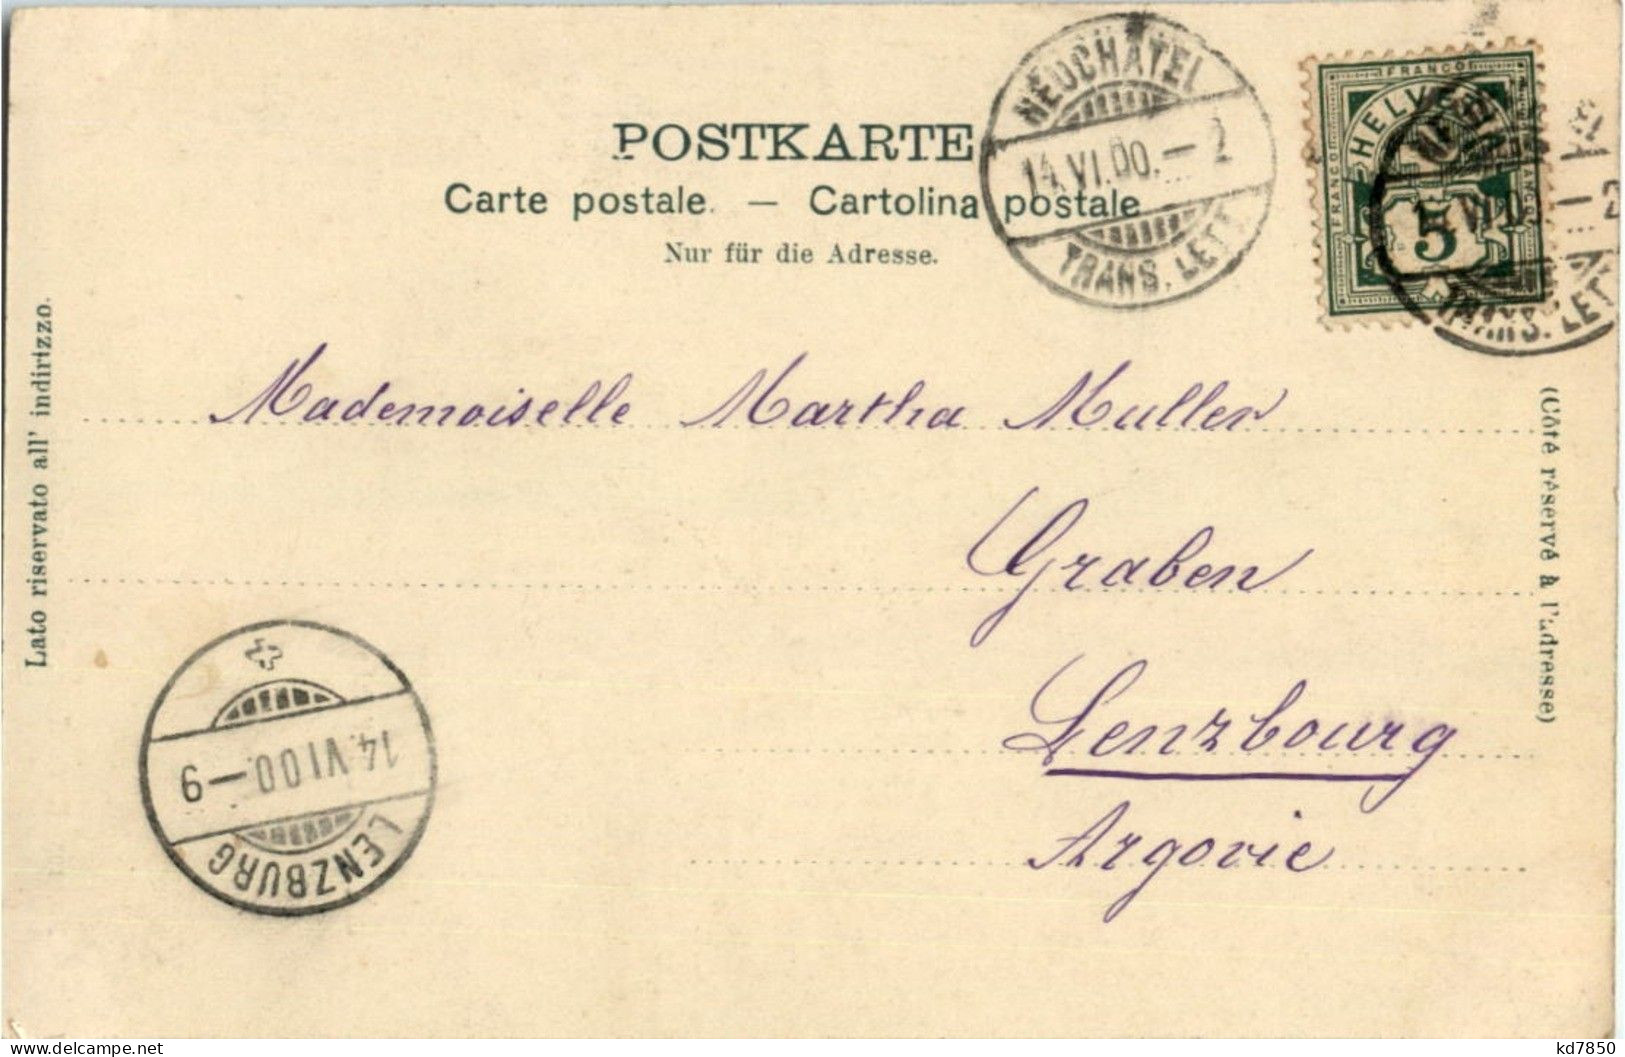 POSTKARTE
Carte postale. — Cartolina postale
Nur für die Adresse.
NEUCHATEL
14.VI.00.—2
TRANS. LETT.
FRANCO
HELVETIA
FRANCO
FRANCO
5
TRANS. LETT
Lato riservato all' indirizzo.
(Côté réservé à l'adresse)
Mademoiselle Martha Muller
Graben
Lenzbourg
Argovie
14.VI.00.—9
LENZBURG
delcampe.net
kd7850